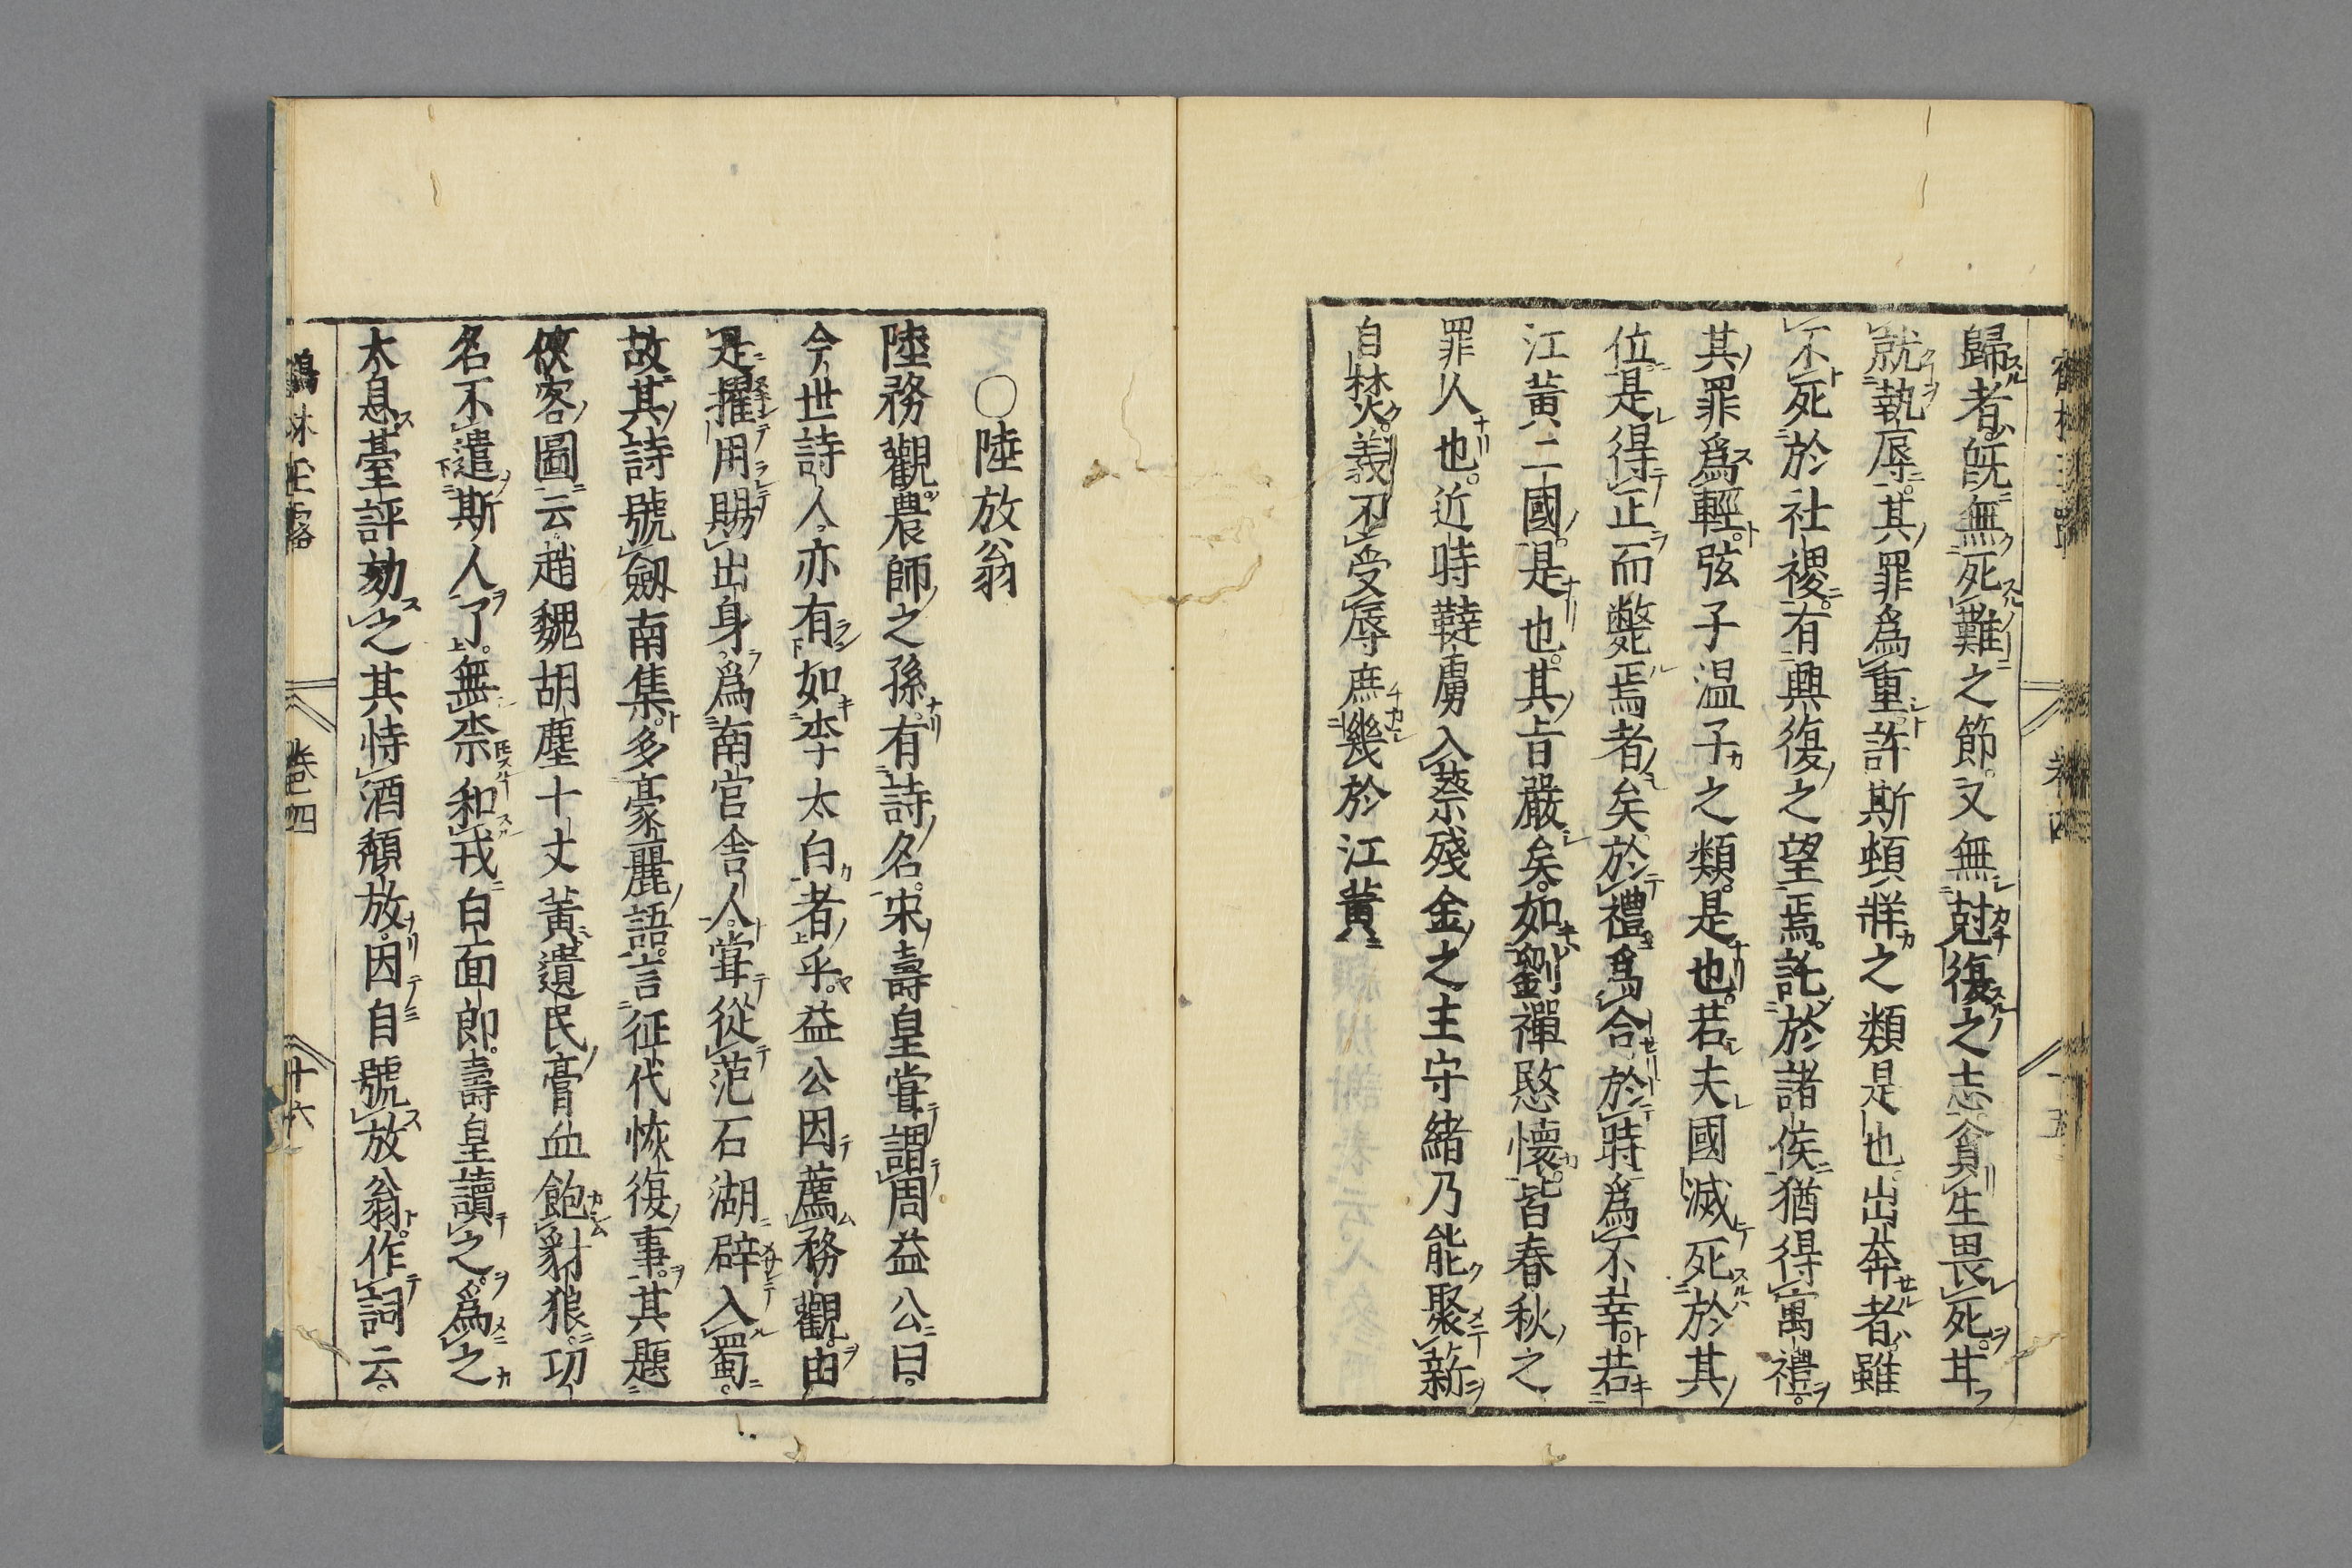 歸者既無死難之節又無尅復之志貪生畏死甘
就執辱其罪爲重許斯頓牂之類是也出奔者雖
不死於社稷有興復之望焉託於諸侯猶得寓禮
其罪爲輕弦子温子之類是也若夫國滅死於其
位是得正而斃焉者矣於禮爲合於時爲不幸若
江黃二國是也其旨嚴矣如劉禪愍懷皆春秋之
罪人也近時韃虜入蔡殘金之主守緒乃能聚薪
自焚義不受辱庶幾於江黃
〇陸放翁
陸務觀農師之孫有詩名宋壽皇嘗謂周益公曰
今世詩人亦有如李太白者乎益公因薦務觀由
是擢用賜出身爲南宮舎人嘗從范石湖辟入蜀
故其詩號劔南集多豪麗語言征伐恢復事其題
俠客圖云趙魏胡塵十丈黃遺民膏血飽豺狼功
名不遣斯人了無柰和戎白面郎壽皇讀之爲之
太息臺評劾之其恃酒頽放因自號放翁作詞云
鶴林玉露
卷四
十六